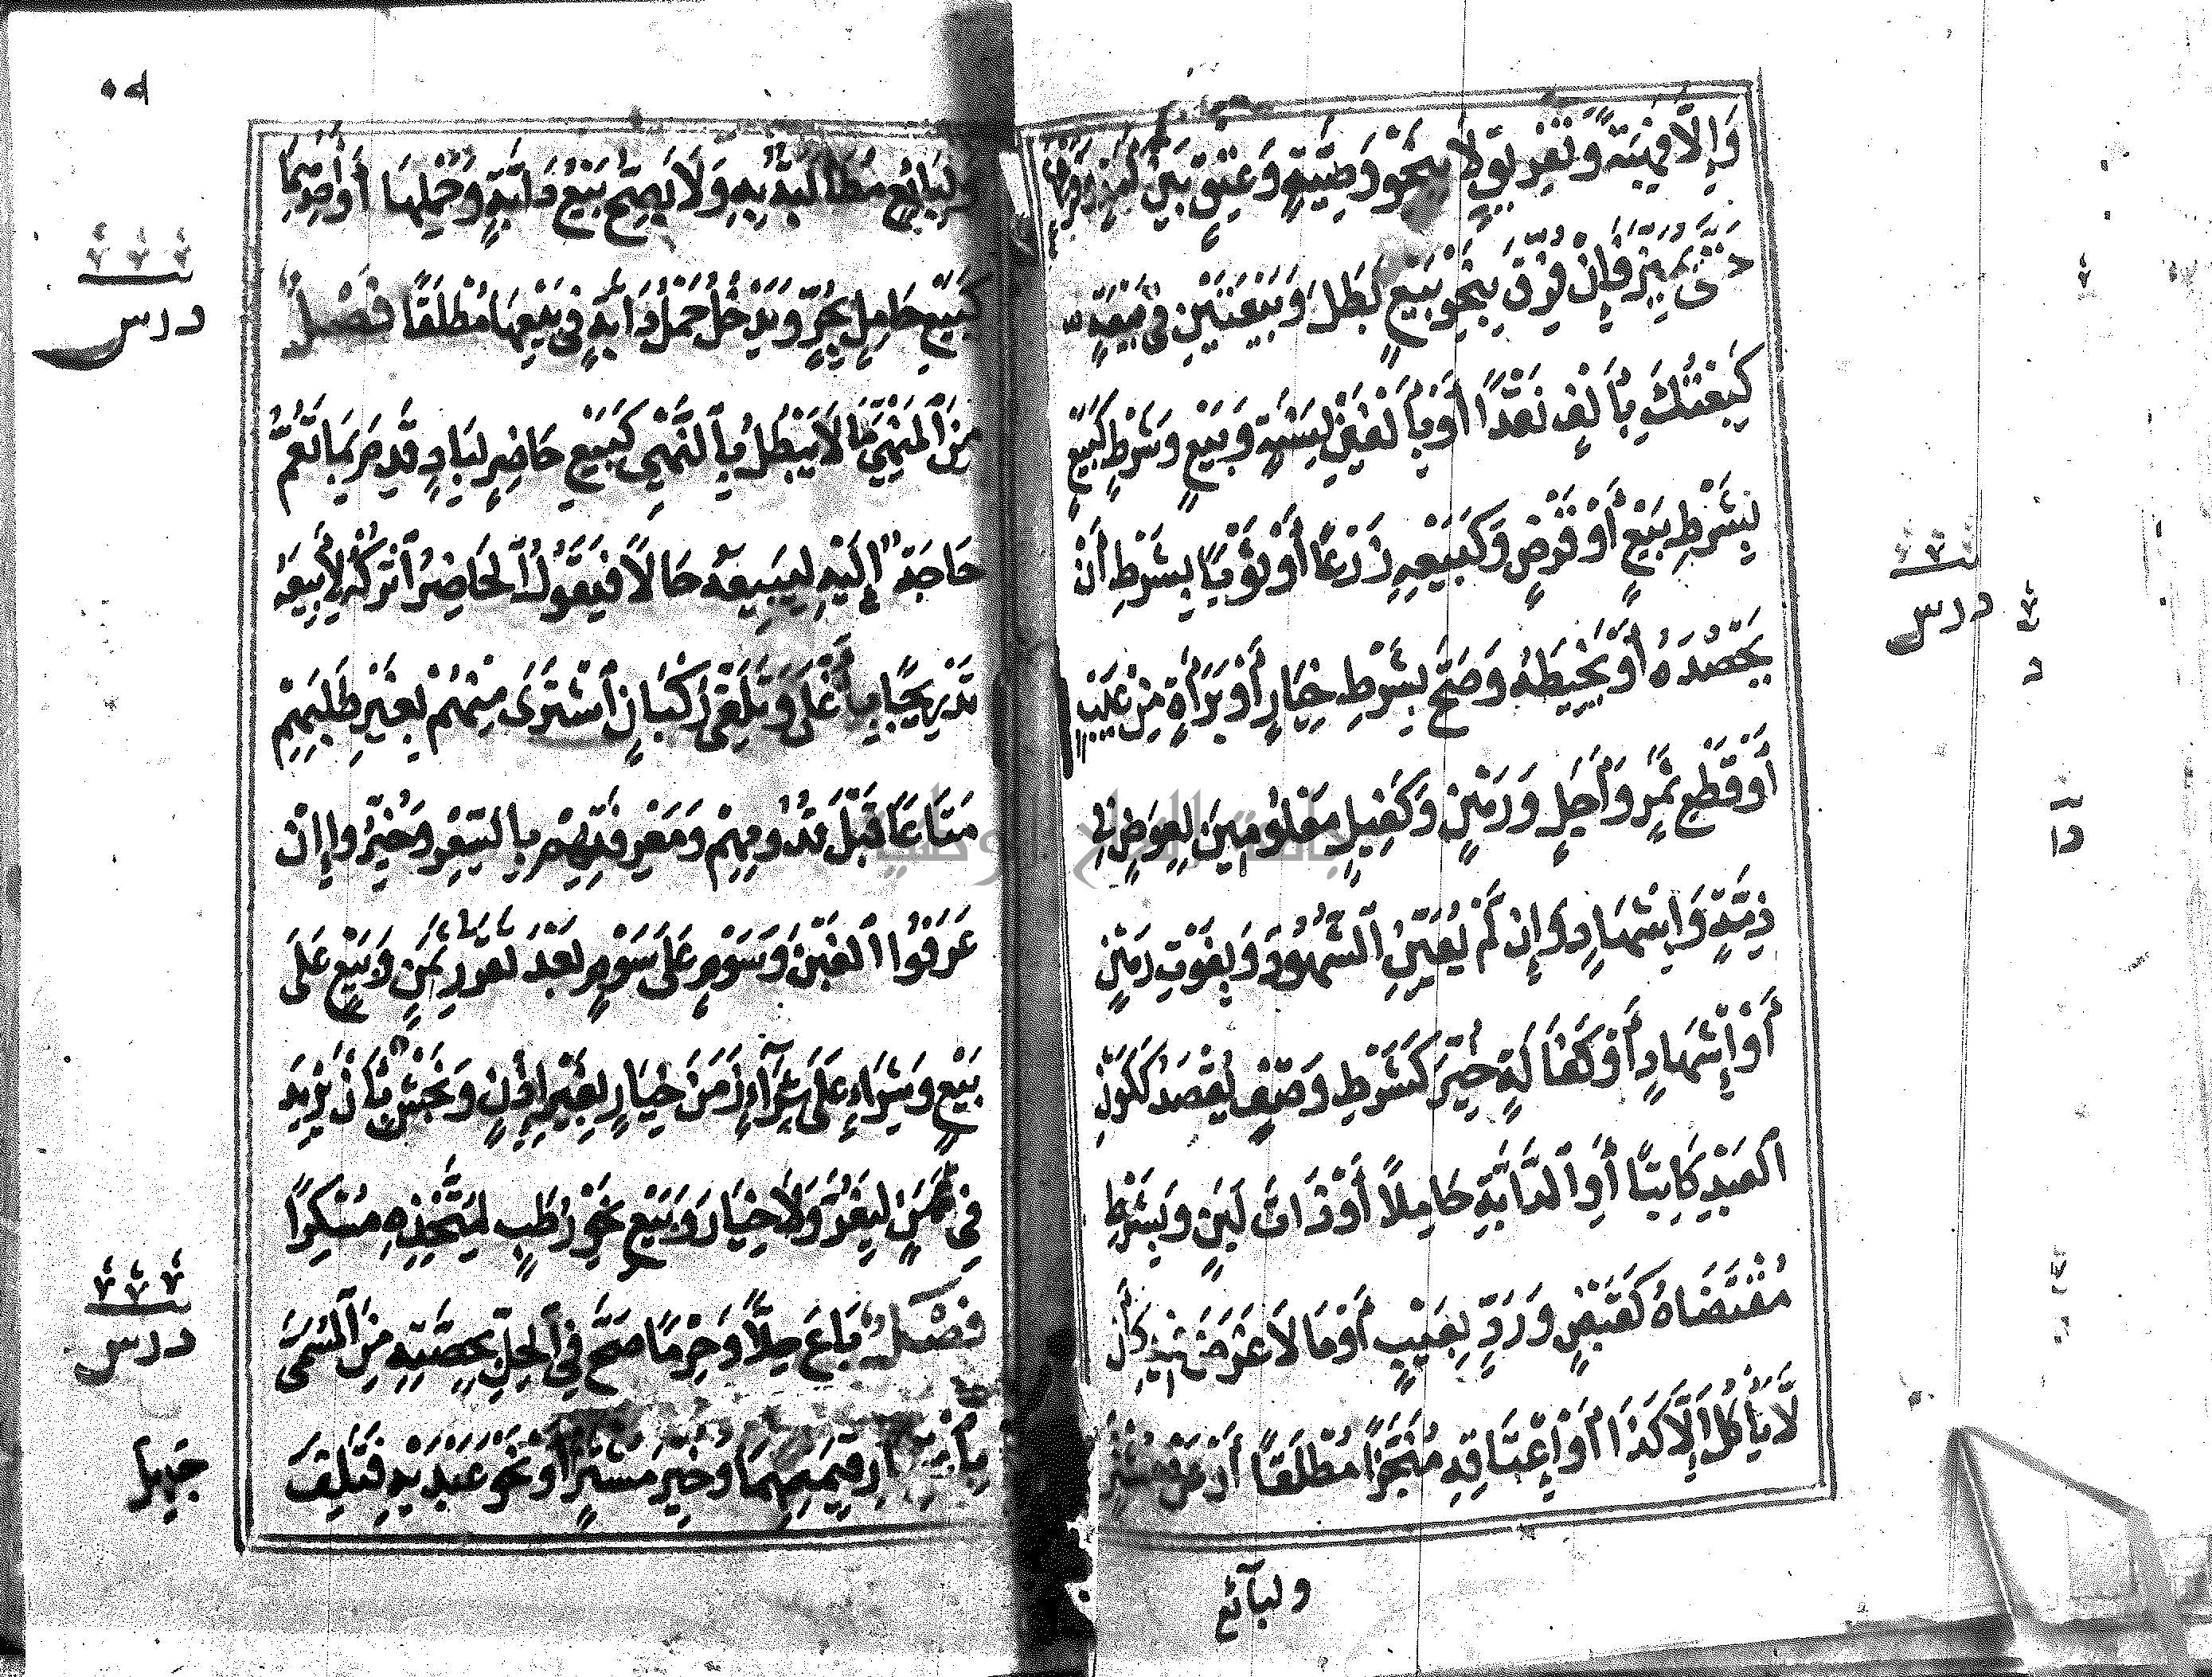 وَإِلَّا فَهِبَةٌ وَتَفْرِيقٍ لَا بِنَحْوِ وَصِيَّةٍ وَعِتْقٍ بَيْنَ أَمَةٍ وَفَرْعِهَا
حَتَّى يُمَيِّزَ فَإِنْ فُرِّقَ بِنَحْوِ بَيْعٍ بَطَلَ وَبَيْعَتَيْنِ فِي بَيْعَةٍ
كَبِعْتُكَ بِأَلْفٍ نَقْدًا أَوْ بِأَلْفَيْنِ لِسَنَةٍ وَبَيْعٍ وَشَرْطٍ كَبَيْعٍ
بِشَرْطِ بَيْعٍ أَوْ قَرْضٍ وَكَبَيْعِهِ زَرْعًا أَوْ ثَوْبًا بِشَرْطِ أَنْ
يَحْصُدَهُ أَوْ يَخِيطَهُ وَصَحَّ بِشَرْطِ خِيَارٍ أَوْ بَرَاءَةٍ مِنْ عَيْبٍ
أَوْ قَطْعِ ثَمَرٍ وَأَجَلٍ وَرَهْنٍ وَكَفِيلٍ مَعْلُومِينَ لِعِوَضٍ فِي
ذِمَّةٍ وَإِشْهَادٍ وَإِنْ لَمْ يُعَيِّنِ الشُّهُودَ وَبِفَوْتِ رَهْنٍ
أَوْ إِشْهَادٍ أَوْ كَفَالَةٍ خُيِّرَ كَشَرْطِ وَصْفٍ يُقْصَدُ كَكَوْنِ
الْعَبْدِ كَاتِبًا أَوِ الدَّابَّةِ حَامِلًا أَوْ ذَاتَ لَبَنٍ وَبِشَرْطِ
مُقْتَضَاهُ كَقَبْضٍ وَرَدٍّ بِعَيْبٍ أَوْ مَا لَا غَرَضَ فِيهِ كَأَنْ
لَا يَأْكُلَ إِلَّا كَذَا أَوْ إِعْتَاقِهِ مُنَجَّزًا مُطْلَقًا أَوْ عَنْ مُشْتَرٍ
ولبائع
درس
وَلِبَائِعٍ مُطَالَبَةٌ بِهِ وَلَا يَصِحُّ بَيْعُ دَابَّةٍ وَحَمْلِهَا أَوْ أَحَدِهِمَا
كَبَيْعِ حَامِلٍ بِحُرٍّ وَيَدْخُلُ حَمْلُ دَابَّةٍ فِي بَيْعِهَا مُطْلَقًا فَصْلٌ
مِنَ الْمَنْهِيِّ مَا لَا يَبْطُلُ بِالنَّهْيِ كَبَيْعِ حَاضِرٍ لِبَادٍ قَدِمَ بِمَا تَعُمُّ
حَاجَةٌ إِلَيْهِ لِيَبِيعَهُ حَالًا فَيَقُولُ الْحَاضِرُ اتْرُكْهُ لِأَبِيعَهُ
تَدْرِيجًا بِأَغْلَى وَتَلَقِّي رُكْبَانٍ اشْتَرَى مِنْهُمْ بِغَيْرِ طَلَبِهِمْ
مَتَاعًا قَبْلَ قُدُومِهِمْ وَمَعْرِفَتِهِمْ بِالسِّعْرِ وَخُيِّرُوا إِنْ
عَرَفُوا الْغَبْنَ وَسَوْمٍ عَلَى سَوْمٍ بَعْدَ تَقَرُّرِ ثَمَنٍ وَبَيْعٍ عَلَى
بَيْعٍ وَشِرَاءٍ عَلَى شِرَاءٍ زَمَنَ خِيَارٍ بِغَيْرِ إِذْنٍ وَنَجْشٍ بِأَنْ يَزِيدَ
فِي ثَمَنٍ لِيَغُرَّ وَلَا خِيَارَ وَبَيْعِ نَحْوِ رُطَبٍ لِمُتَّخِذِهِ مُسْكِرًا
فَصْلٌ بَاعَ حِلًّا وَحِرْمًا صَحَّ فِي الْحِلِّ بِحِصَّتِهِ مِنَ الْمُسَمَّى
بِاعْتِبَارِ قِيمَتِهِمَا وَخُيِّرَ مُشْتَرٍ أَوْ نَحْوَ عَبْدَيْهِ فَتَلِفَ
درس
درس
جهل